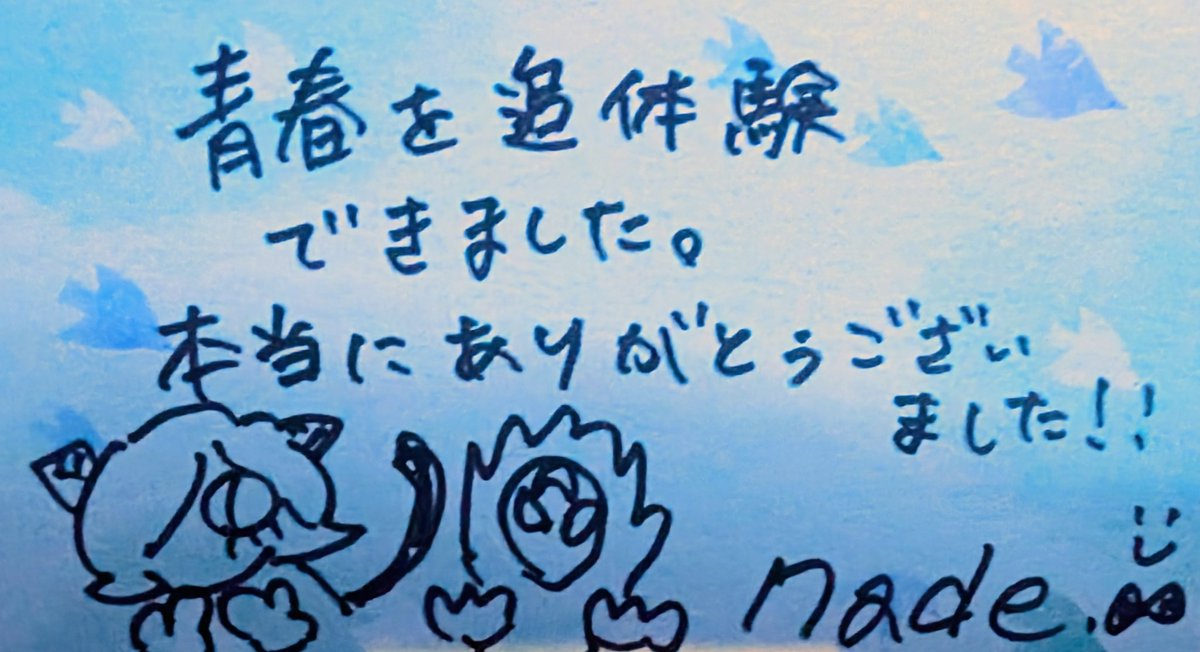 青春を追体験
できました。
本当にありがとうござい
ました!!
nade.